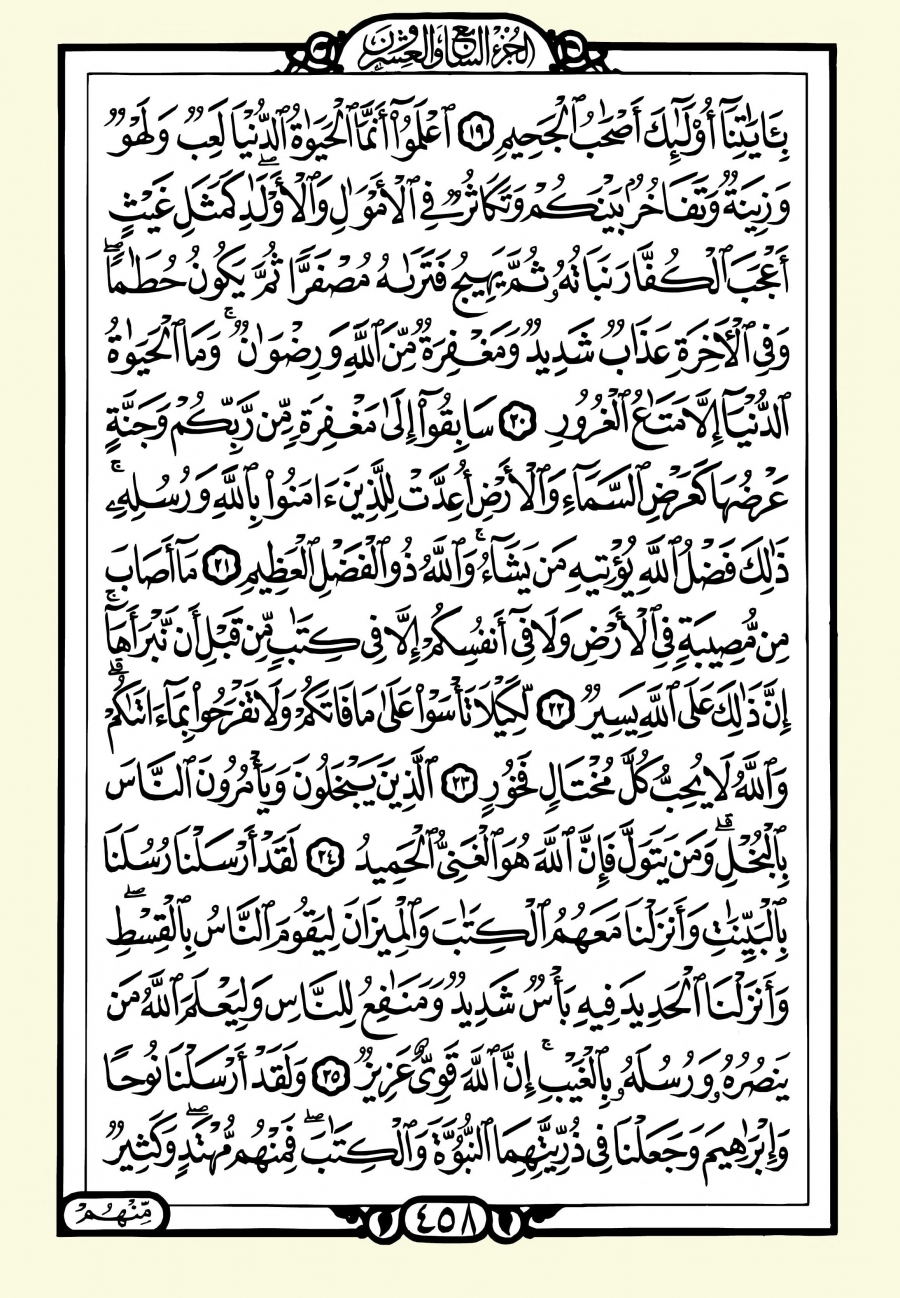 الجزء السابع والعشرون
بِـَٔايَٰتِنَآ أُو۟لَٰٓئِكَ أَصْحَٰبُ ٱلْجَحِيمِ ١٩ ٱعْلَمُوٓا۟ أَنَّمَا ٱلْحَيَوٰةُ ٱلدُّنْيَا لَعِبٌ وَلَهْوٌ
وَزِينَةٌ وَتَفَاخُرٌۢ بَيْنَكُمْ وَتَكَاثُرٌ فِي ٱلْأَمْوَٰلِ وَٱلْأَوْلَٰدِ ۖ كَمَثَلِ غَيْثٍ
أَعْجَبَ ٱلْكُفَّارَ نَبَاتُهُۥ ثُمَّ يَهِيجُ فَتَرَىٰهُ مُصْفَرًّا ثُمَّ يَكُونُ حُطَٰمًا ۖ
وَفِي ٱلْأَخِرَةِ عَذَابٌ شَدِيدٌ وَمَغْفِرَةٌ مِّنَ ٱللَّهِ وَرِضْوَٰنٌ ۚ وَمَا ٱلْحَيَوٰةُ
ٱلدُّنْيَآ إِلَّا مَتَٰعُ ٱلْغُرُورِ ٢٠ سَابِقُوٓا۟ إِلَىٰ مَغْفِرَةٍ مِّن رَّبِّكُمْ وَجَنَّةٍ
عَرْضُهَا كَعَرْضِ ٱلسَّمَآءِ وَٱلْأَرْضِ أُعِدَّتْ لِلَّذِينَ ءَامَنُوا۟ بِٱللَّهِ وَرُسُلِهِۦ ۚ
ذَٰلِكَ فَضْلُ ٱللَّهِ يُؤْتِيهِ مَن يَشَآءُ ۚ وَٱللَّهُ ذُو ٱلْفَضْلِ ٱلْعَظِيمِ ٢١ مَآ أَصَابَ
مِن مُّصِيبَةٍ فِي ٱلْأَرْضِ وَلَا فِىٓ أَنفُسِكُمْ إِلَّا فِى كِتَٰبٍ مِّن قَبْلِ أَن نَّبْرَأَهَآ ۚ
إِنَّ ذَٰلِكَ عَلَى ٱللَّهِ يَسِيرٌ ٢٢ لِّكَيْلَا تَأْسَوْا۟ عَلَىٰ مَا فَاتَكُمْ وَلَا تَفْرَحُوا۟ بِمَآ ءَاتَىٰكُمْ ۗ
وَٱللَّهُ لَا يُحِبُّ كُلَّ مُخْتَالٍ فَخُورٍ ٢٣ ٱلَّذِينَ يَبْخَلُونَ وَيَأْمُرُونَ ٱلنَّاسَ
بِٱلْبُخْلِ ۗ وَمَن يَتَوَلَّ فَإِنَّ ٱللَّهَ هُوَ ٱلْغَنِيُّ ٱلْحَمِيدُ ٢٤ لَقَدْ أَرْسَلْنَا رُسُلَنَا
بِٱلْبَيِّنَٰتِ وَأَنزَلْنَا مَعَهُمُ ٱلْكِتَٰبَ وَٱلْمِيزَانَ لِيَقُومَ ٱلنَّاسُ بِٱلْقِسْطِ ۖ
وَأَنزَلْنَا ٱلْحَدِيدَ فِيهِ بَأْسٌ شَدِيدٌ وَمَنَٰفِعُ لِلنَّاسِ وَلِيَعْلَمَ ٱللَّهُ مَن
يَنصُرُهُۥ وَرُسُلَهُۥ بِٱلْغَيْبِ ۚ إِنَّ ٱللَّهَ قَوِىٌّ عَزِيزٌ ٢٥ وَلَقَدْ أَرْسَلْنَا نُوحًا
وَإِبْرَٰهِيمَ وَجَعَلْنَا فِى ذُرِّيَّتِهِمَا ٱلنُّبُوَّةَ وَٱلْكِتَٰبَ ۖ فَمِنْهُم مُّهْتَدٍ ۖ وَكَثِيرٌ
مِّنْهُمْ
٤٥٨